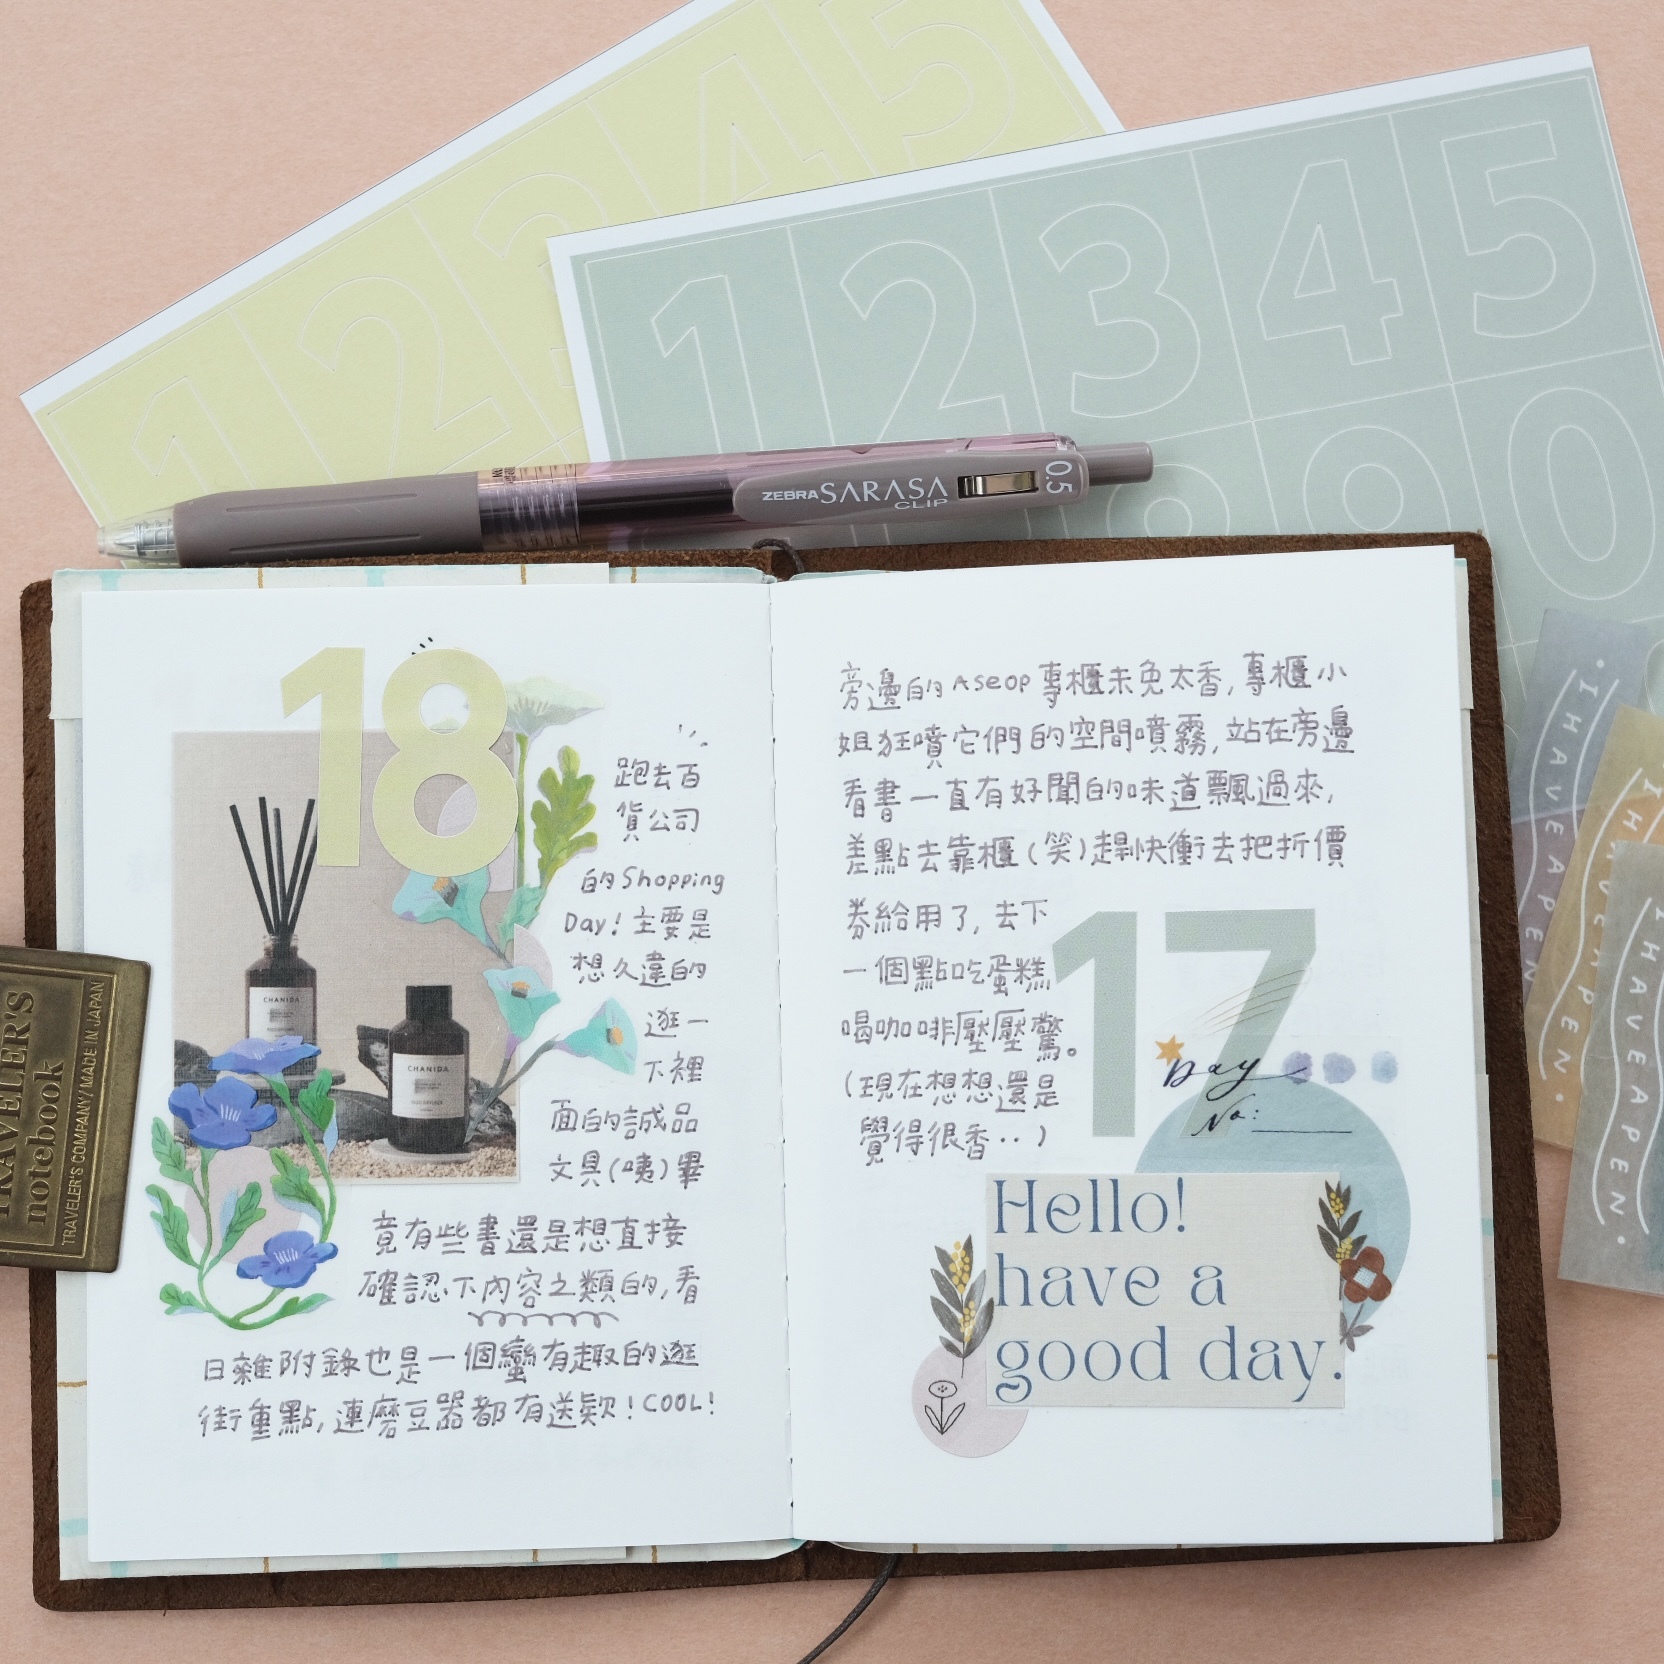 1 2 3 4 5
1 2 3 4 5
8 9 0
ZEBRA SARASA CLIP 0.5
TRAVELER'S notebook
TRAVELER'S COMPANY/MADE IN JAPAN
18
CHANIDA
CHANIDA
跑去百
貨公司
的Shopping
Day! 主要是
想久違的
逛一
下裡
面的誠品
文具(咦)畢
竟有些書還是想直接
確認下內容之類的,看
日雜附錄也是一個蠻有趣的逛
街重點,連磨豆器都有送欸!COOL!
旁邊的Aseop專櫃未免太香,專櫃小
姐狂噴它們的空間噴霧,站在旁邊
看書一直有好聞的味道飄過來,
差點去靠櫃(笑)趕快衝去把折價
券給用了,去下
一個點吃蛋糕
喝咖啡壓壓驚。
(現在想想還是
覺得很香..)
17
Day
No:
Hello!
have a
good day.
·I HAVE A PEN·
I HAVE A PEN·
I HAVE A PEN·